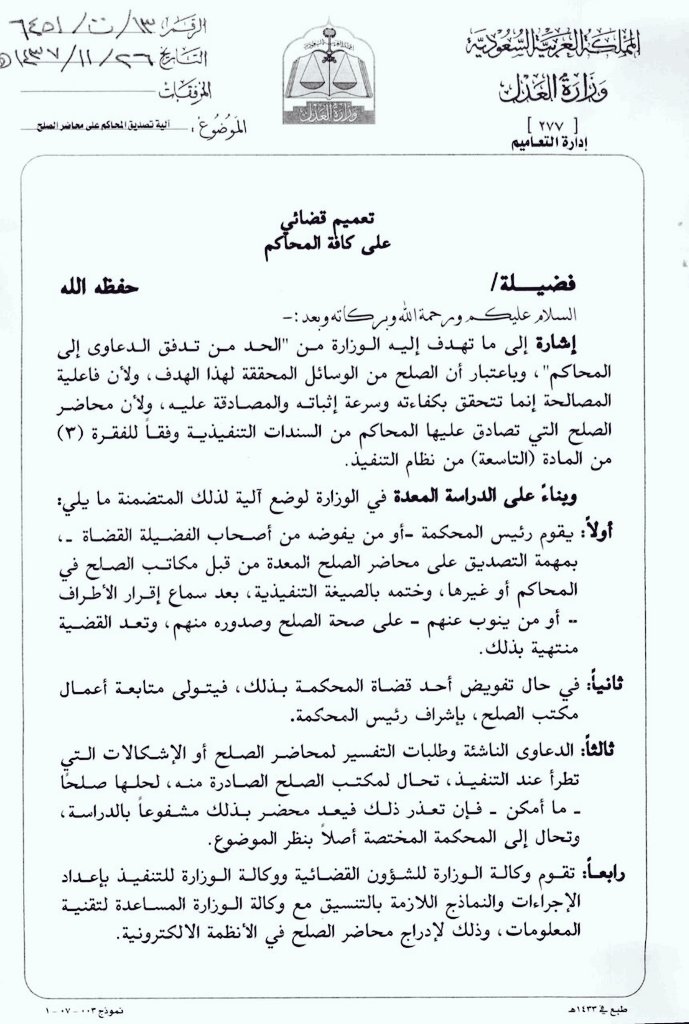 المملكة العربية السعودية
وزارة العدل
[ ٢٧٧ ]
إدارة التعاميم
وزارة العدل
الرقم ١٣/ت/٦٤٥١
التاريخ ١٤٣٧/١١/٢٦هـ
المرفقات
الموضوع: آلية تصديق المحاكم على محاضر الصلح
تعميم قضائي
على كافة المحاكم
فضيـلـة/ حفظه الله
السلام عليكم ورحمة الله وبركاته وبعد:-
إشارة إلى ما تهدف إليه الوزارة من "الحد من تدفق الدعاوى إلى
المحاكم"، وباعتبار أن الصلح من الوسائل المحققة لهذا الهدف، ولأن فاعلية
المصالحة إنما تتحقق بكفاءته وسرعة إثباته والمصادقة عليه، ولأن محاضر
الصلح التي تصادق عليها المحاكم من السندات التنفيذية وفقاً للفقرة (٣)
من المادة (التاسعة) من نظام التنفيذ.
وبناءً على الدراسة المعدة في الوزارة لوضع آلية لذلك المتضمنة ما يلي:
أولاً: يقوم رئيس المحكمة -أو من يفوضه من أصحاب الفضيلة القضاة -،
بمهمة التصديق على محاضر الصلح المعدة من قبل مكاتب الصلح في
المحاكم أو غيرها، وختمه بالصيغة التنفيذية، بعد سماع إقرار الأطراف
-- أو من ينوب عنهم - على صحة الصلح وصدوره منهم، وتعد القضية
منتهية بذلك.
ثانياً: في حال تفويض أحد قضاة المحكمة بذلك، فيتولى متابعة أعمال
مكتب الصلح، بإشراف رئيس المحكمة.
ثالثاً: الدعاوى الناشئة وطلبات التفسير لمحاضر الصلح أو الإشكالات التي
تطرأ عند التنفيذ، تحال لمكتب الصلح الصادرة منه، لحلها صلحًا
- ما أمكن - فإن تعذر ذلك فيعد محضر بذلك مشفوعاً بالدراسة،
وتحال إلى المحكمة المختصة أصلاً بنظر الموضوع.
رابعاً: تقوم وكالة الوزارة للشؤون القضائية ووكالة الوزارة للتنفيذ بإعداد
الإجراءات والنماذج اللازمة بالتنسيق مع وكالة الوزارة المساعدة لتقنية
المعلومات، وذلك لإدراج محاضر الصلح في الأنظمة الالكترونية.
طبع في ١٤٣٣هـ
نموذج ٠٠٣ - ٠٧ - ١